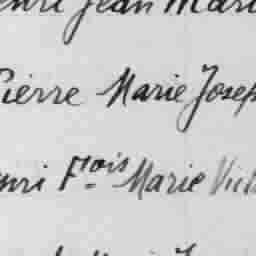 Jean Mari
Pierre Marie Josep
nri Fois Marie Vict